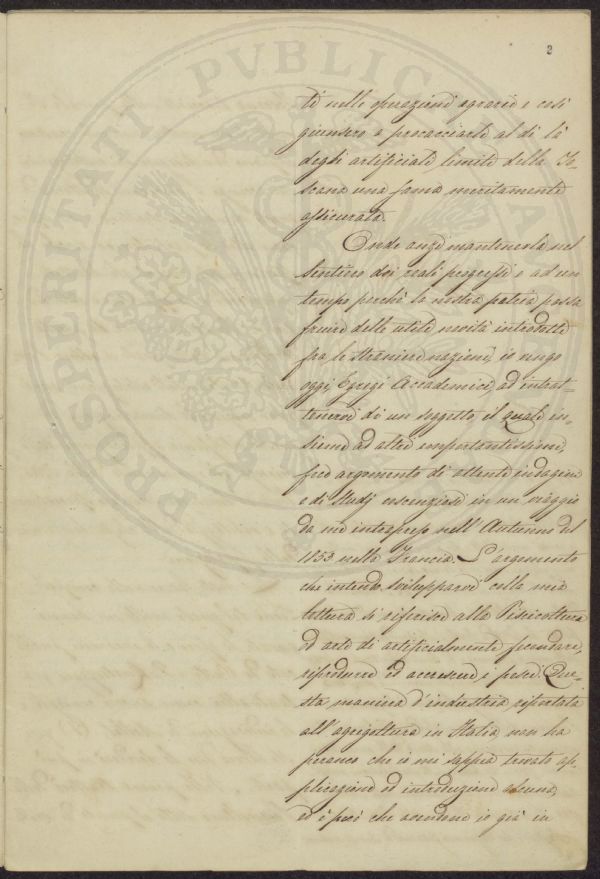 2
ti nelle operazioni agrarie e così
giunsero a procacciarle al di là
degli artificiali limiti della To-
scana una fama meritamente
assicurata.
Onde anzi mantenerla nel
sentiero dei reali progressi e ad un
tempo perchè la nostra patria possa
fruire delle utili novità introdotte
fra le straniere nazioni, io vengo
oggi, Egregi Accademici, ad intrat-
tenervi di un soggetto, il quale in-
sieme ad altri importantissimi,
feci argomento di attente indagini
e di studj coscenziosi in un viaggio
da me intrapreso nell'Autunno del
1853 nella Francia. L'argomento
che intendo svilupparvi colla mia
lettura si riferisce alla Piscicoltura
ed arte di artificialmente fecondare,
riprodurre ed accrescere i pesci. Que-
sta maniera d'industria riportata
all'agricoltura in Italia non ha
peranco che io mi sappia trovato ap-
plicazione ed introduzione alcuna,
ed è però che avendone io già in
PROSPERITATI PVBLICAE